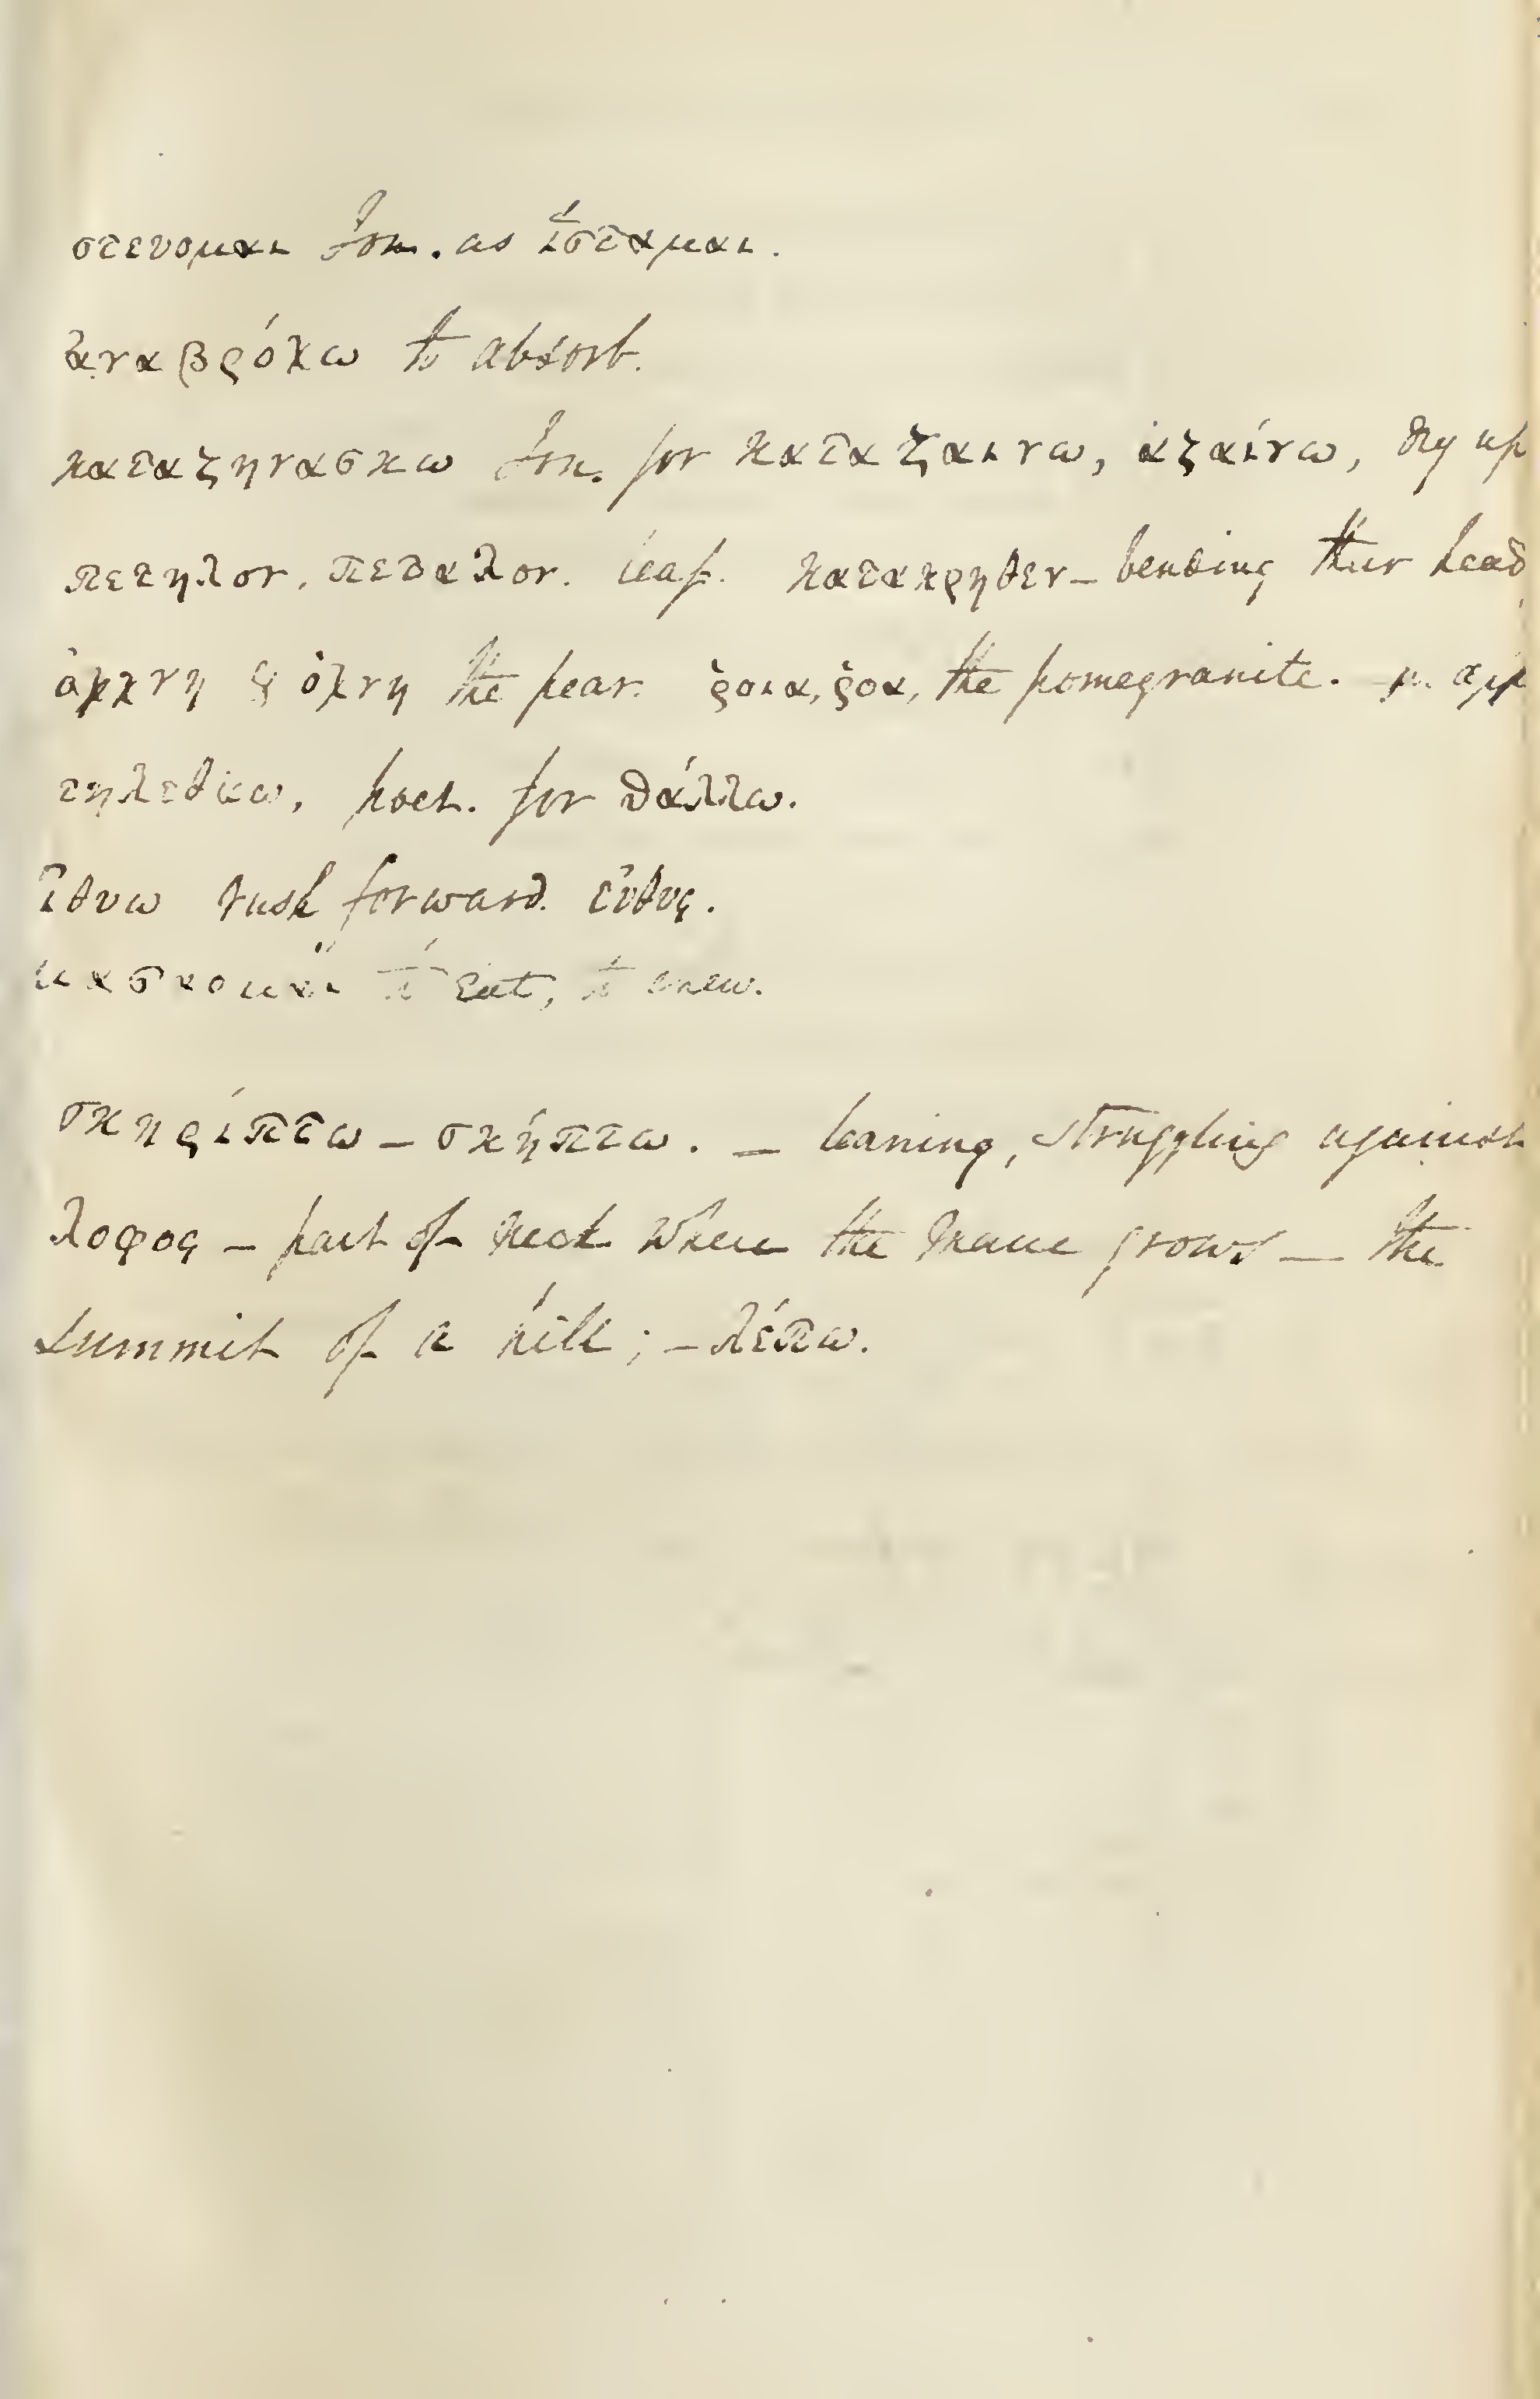 στευομαι Ion. as ἵσταμαι.
ἀναβρόχω to absorb.
καταζηνασκω Ion. for καταζαινω, ἀζαίνω, dry up
πετηλον, πεταλον. leaf. κατακρηθεν – bending their head
ὀγχνη & ὀχνη the pear. ῥοια, ῥοα, the pomegranite.
τηλεθαω, poet. for θάλλω.
ἰθυω rush forward. εὐθυς.
to eat, to chew.
σκηρίπτω – σκήπτω. – leaning, struggling against
λοφος – part of neck where the mane grows – the
summit of a hill; – λέπω.